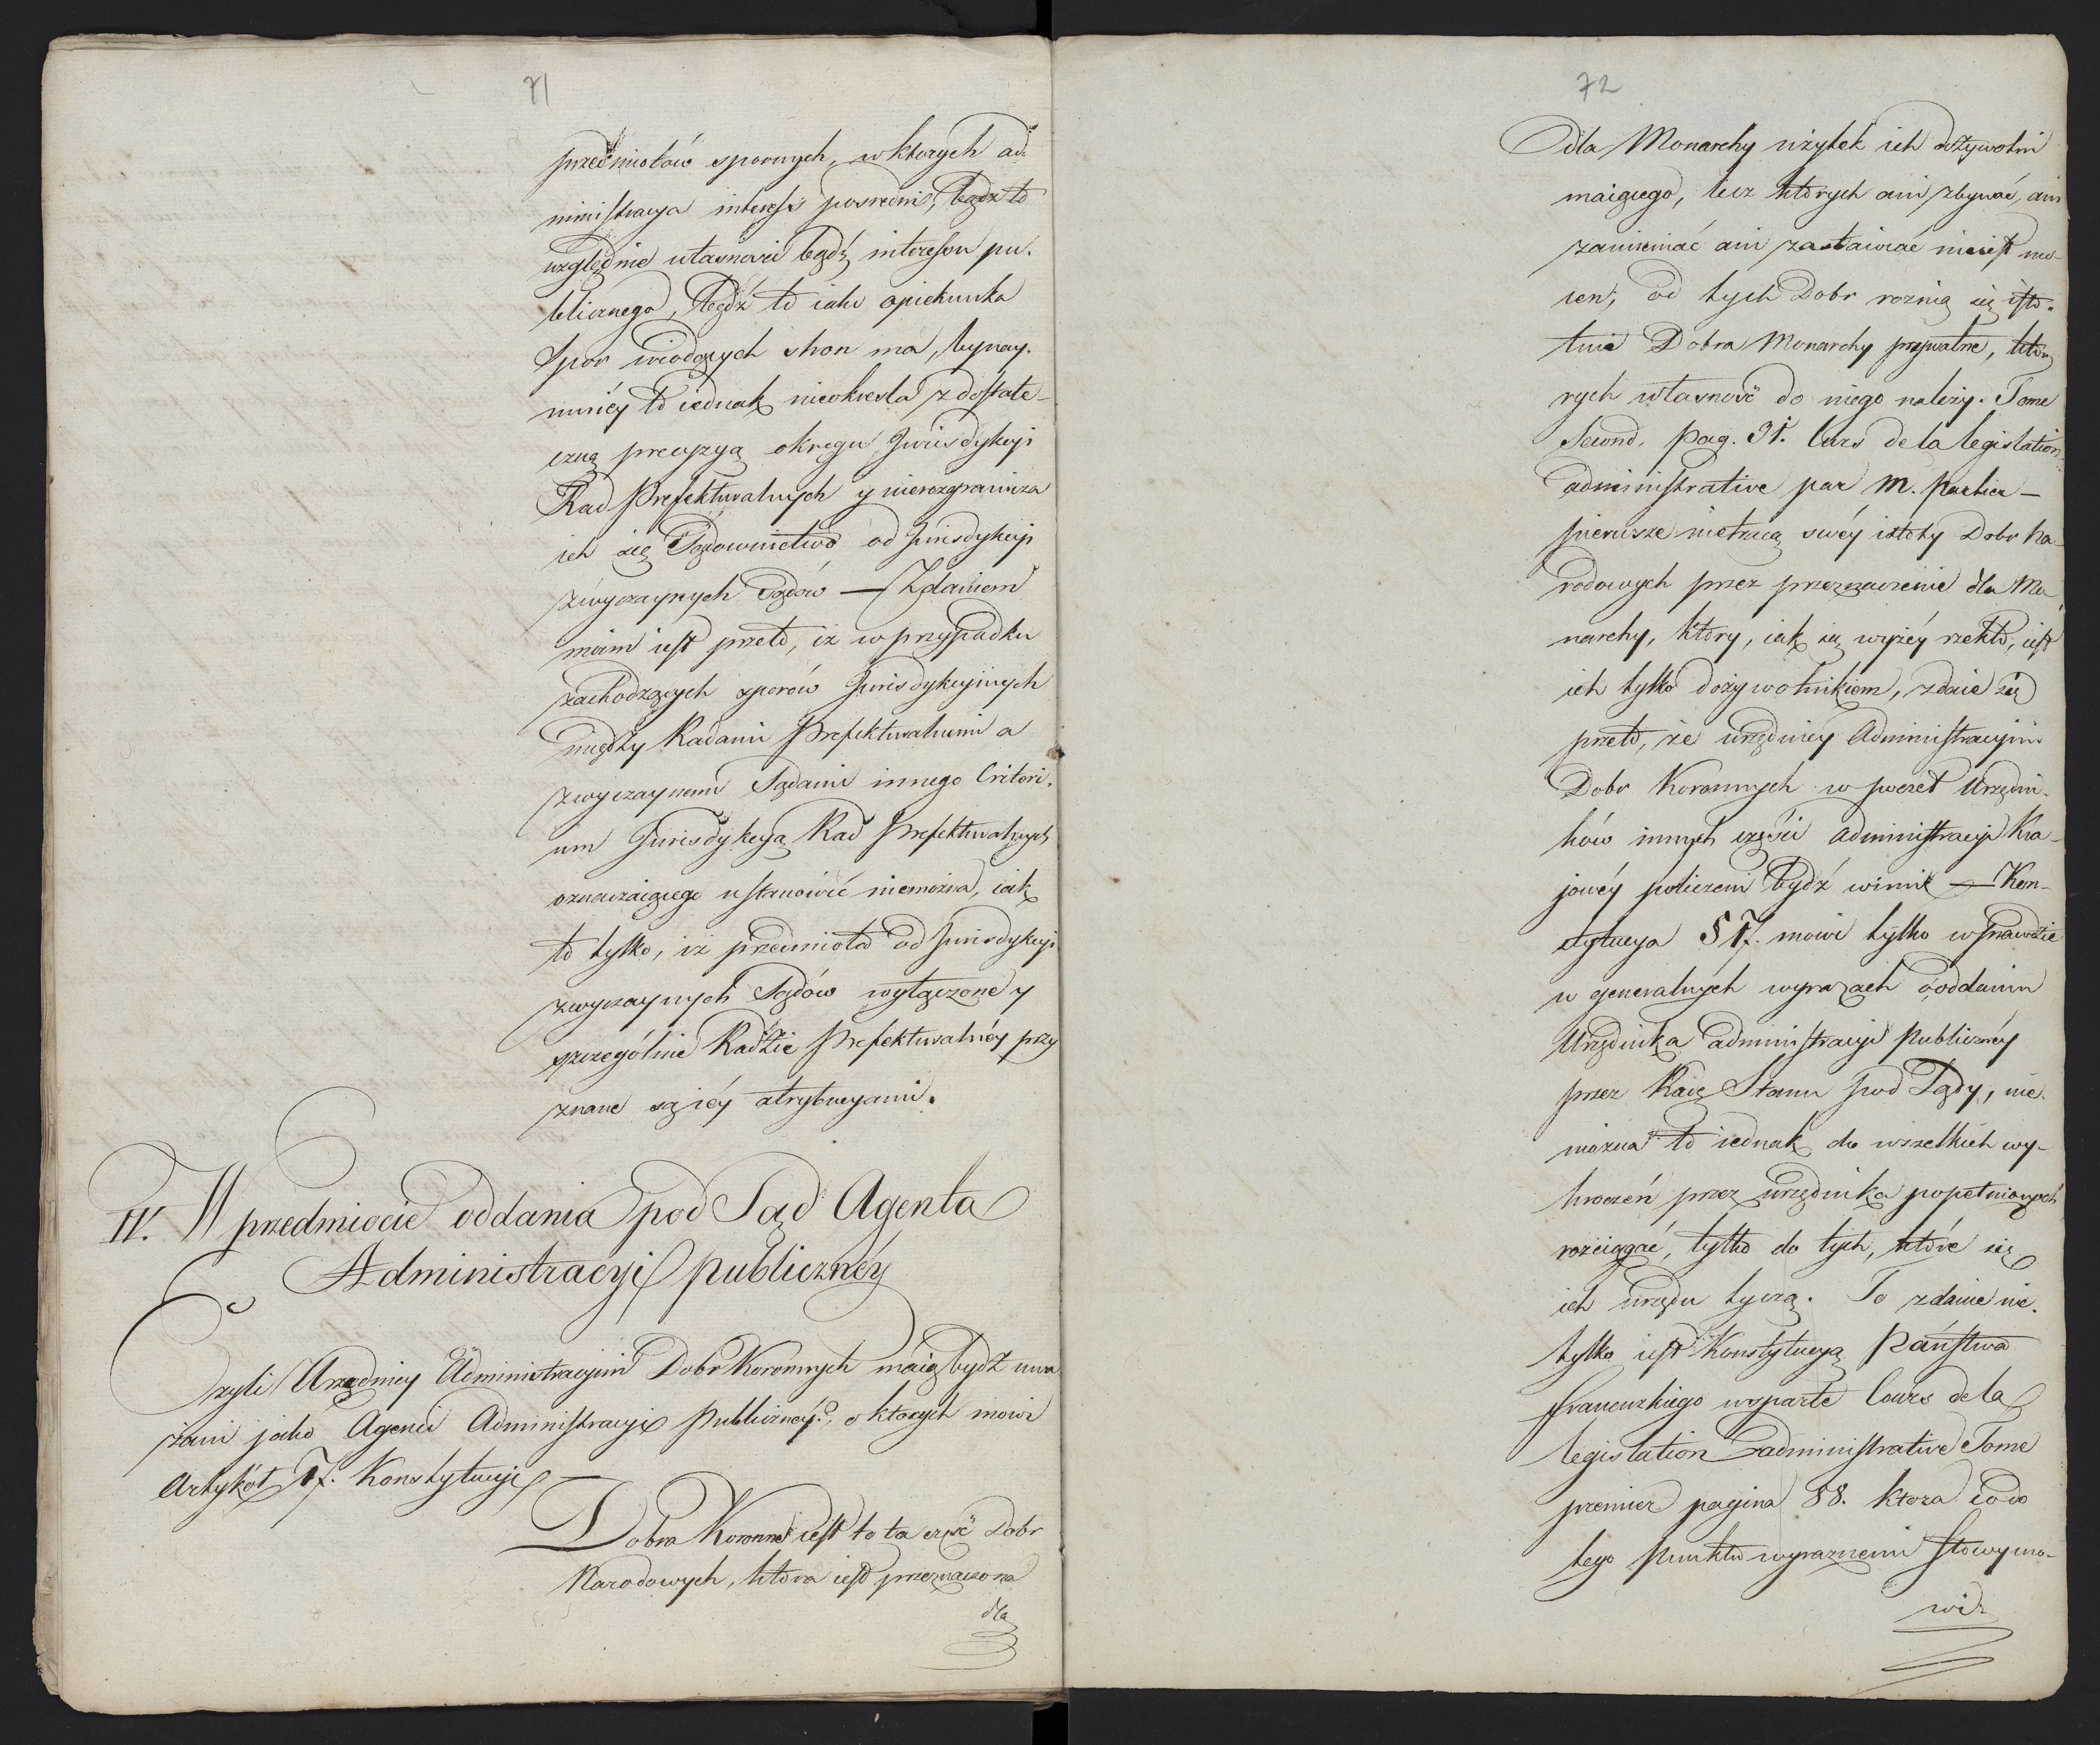 71
przedmiotów spornych, w ktorych ad=
ministracya interess posredni, bądz to
względnie własnosci bądź interessu pu-
blicznego, bądź to iako opiekunka
spor wiodących stron ma, bynay-
mniéy to iednak nieokresla z dostate-
czną precyzyą okręgu Jurisdykcyi
Rad Prefekturalnych y nierozgranicza
ich się Sądownictwo od Jurisdykcyi
zwyczaynych Sądów — Zdaniem
moim iest przeto, iż w przypadku
zachodzących sporów Jurisdykcyinych
między Radami Prefekturalnemi a
zwyczaynemi Sądami innego Criteri-
um Jurisdykcyą Rad Prefekturalnych
oznaczaiącego ustanowić niemożna, iak
to tylko, iż przedmiota od Jurisdykcyi
zwyczaynych Sądów wyłączone y
szczególnie Radzie Prefekturalnéy przy
znane są iéy atrybucyami.
IV. W przedmiocie oddania pod Sąd Agenta
Administracyi publicznéy
Czyli Urzędnicy Administracyini Dobr Koronnych maią bydź uwa
żani jako Agenci Administracyi Publicznéy?, o ktorych mowi
Artykół 17. Konstytucyi —
Dobra Koronne iest to ta część Dobr
Narodowych, która iest przeznaczona
dla
72
dla Monarchy użytek ich dożywotni
maiącego, lecz których ani zbywać, ani
zamieniać ani zastawiać nieiest mo-
cen, od tych Dobr roznią się isto-
tnie Dobra Monarchy prywatne, któ-
rych własność do niego należy. Tome
Second, pag. 91. Curs de la legislation
administrative par M. Partier —
pierwsze nietracą swéy istoty Dobr Na-
rodowych przez przeznaczenie dla Mo-
narchy, który, iak się wyżéy rzekło, iest
ich tylko dożywotnikiem, zdaie się
przeto, że urzędnicy Administracyini
Dobr Koronnych w poczet Urzędni-
ków innych części administracyi Kra-
jowéy policzeni bydź winni — Kon-
stytucya § 17. mowi tylko wprawdzie
w generalnych wyrazach o oddaniu
Urzędnika administracyi publicznéy
przez Radę Stanu pod Sądy, nie-
można to iednak do wszelkich wy-
kroczeń przez urzędnika popełnionych
rozciągać, tylko do tych, które się
ich urzędu tyczą. To zdanie nie-
tylko iest Konstytucyą Państwa
francuzkiego wsparte Cours de la
legislation administrative Tome
premier pagina 88. ktora co do
tego punktu wyraznemi słowy mo-
wi